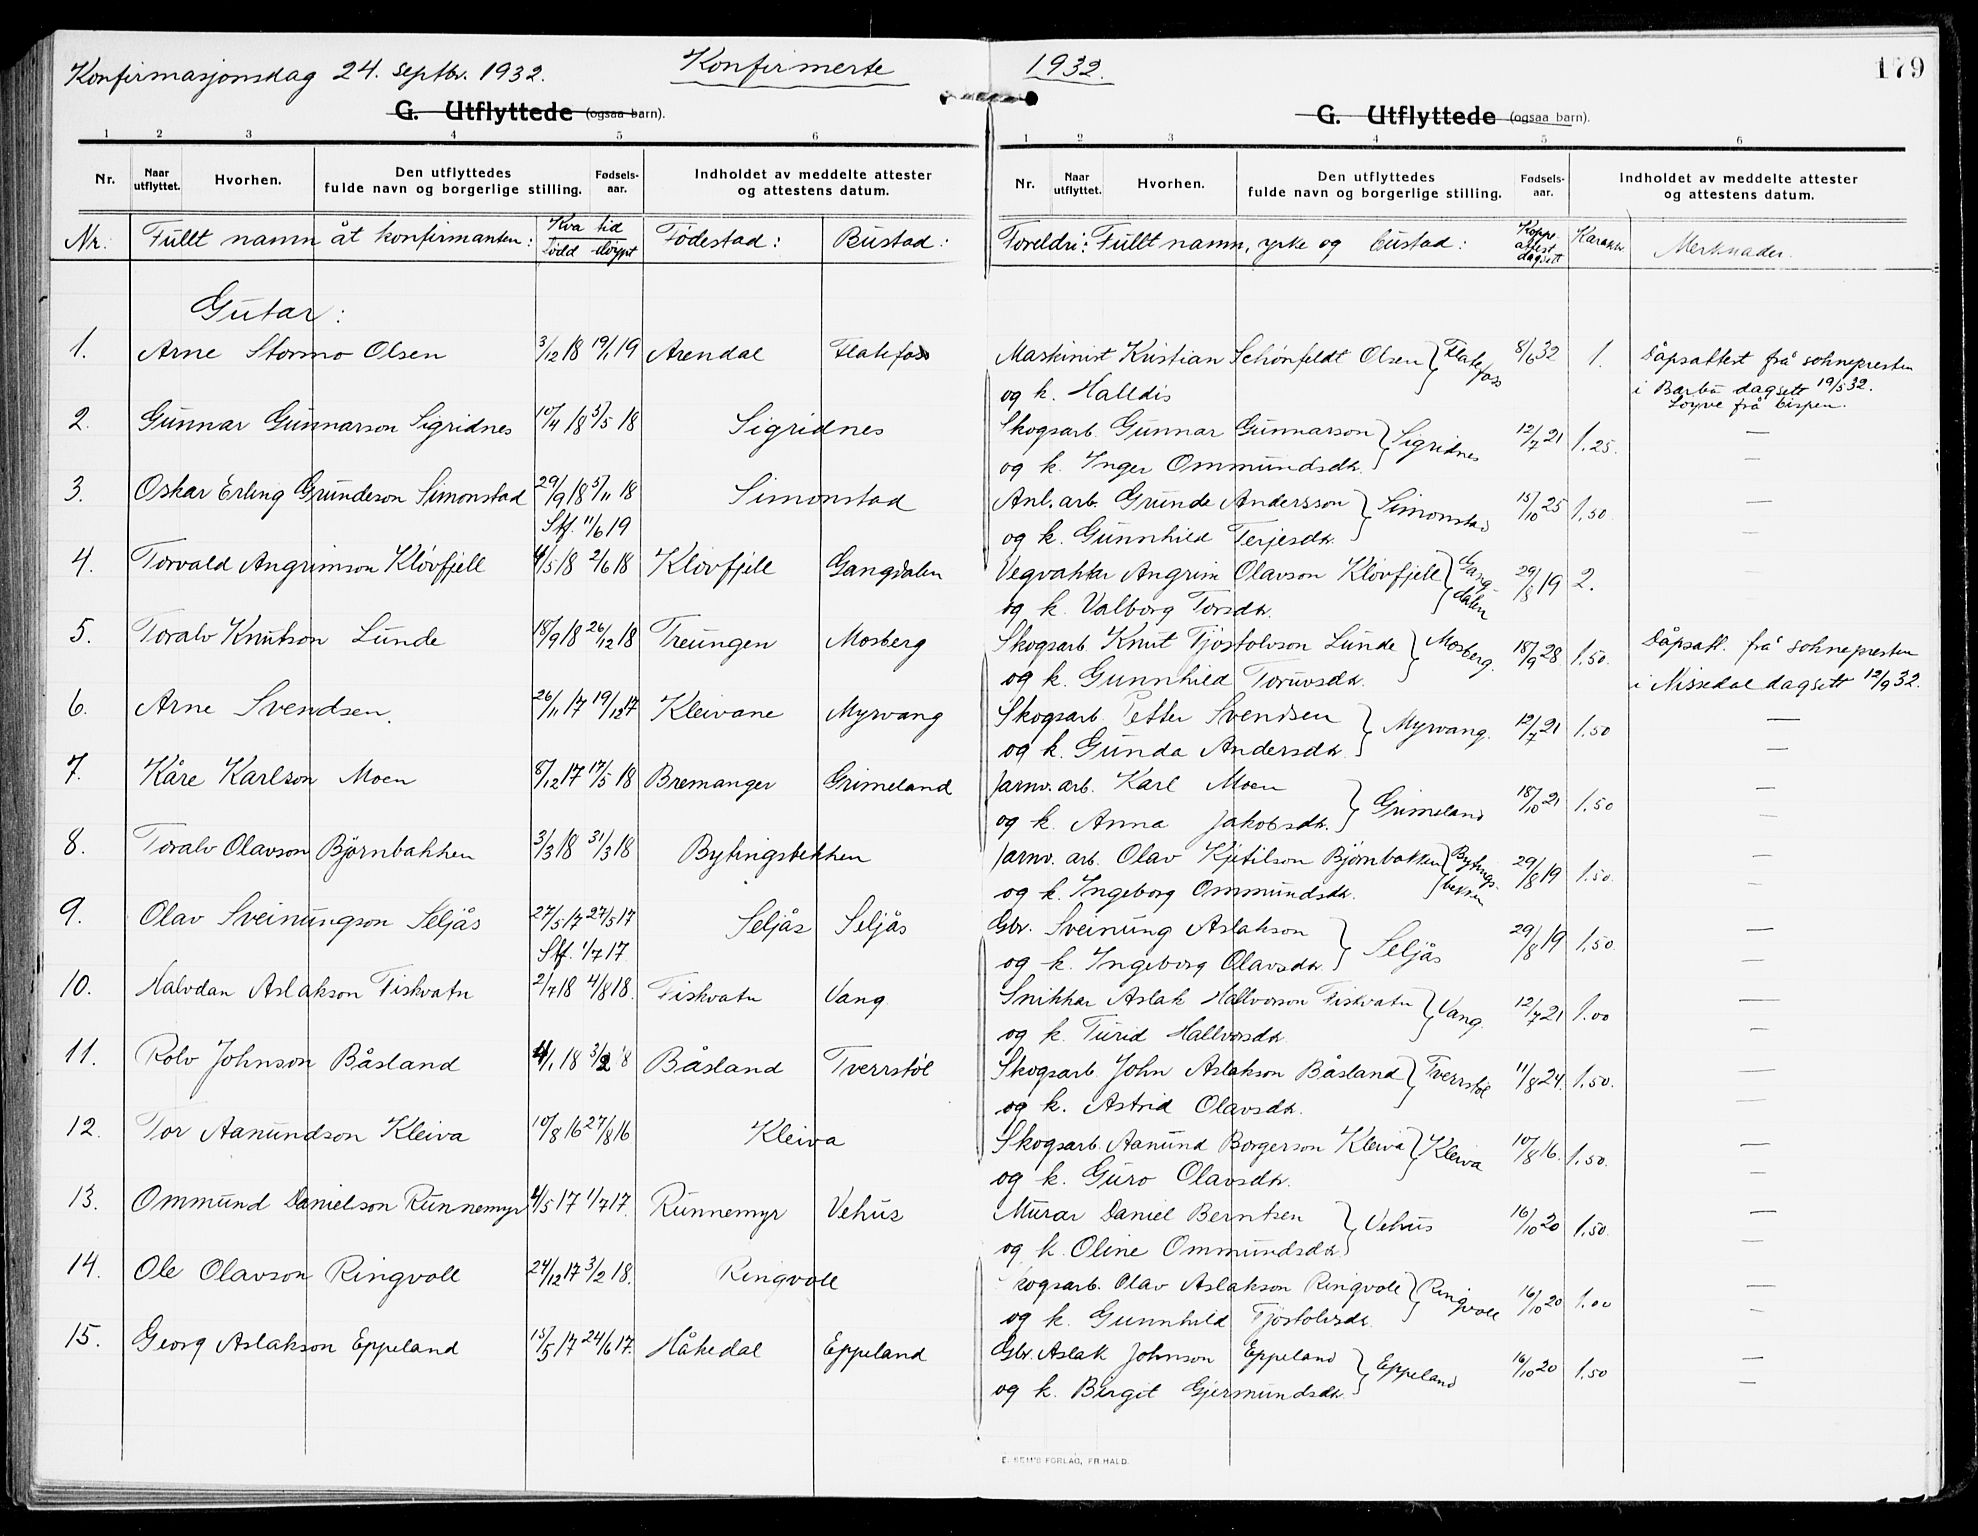 Konfirmasjonsdag 24. septbr. 1932. Konfirmerte 1932. 179
G. Utflyttede (ogsaa barn).
G. Utflyttede (ogsaa barn).
1 2 3 4 5 6
1 2 3 4 5 6
Nr. Naar utflyttet. Hvorhen. Den utflyttedes fulde navn og borgerlige stilling. Fødsels-aar. Indholdet av meddelte attester og attestens datum.
Nr. Naar utflyttet. Hvorhen. Den utflyttedes fulde navn og borgerlige stilling. Fødsels-aar. Indholdet av meddelte attester og attestens datum.
Nr. Fullt namn åt konfirmanten: Kva tid født døypt Fødestad: Bustad: Foreldri: Fullt namn, yrke og bustad: Kopp. attest dagsett Karakter Merknader.
Gutar:
1. Arne Stormo Olsen 3/12 18 19/1 19 Arendal Flatefoss Maskinist Kristian Schönfeldt Olsen } Flatefoss 8/6 32 1. Dåpsattest frå soknepresten
og k. Halldis i Barbu dagsett 19/5 32.
Løyve frå bispen.
2. Gunnar Gunnarson Sigridnes 10/4 18 5/5 18 Sigridnes Skogsarb. Gunnar Gunnarson } Sigridnes 12/7 21 1.25. —
og k. Inger Ommundsdr. —
3. Oskar Erling Grundeson Simonstad 29/9 18 5/11 18 Simonstad Anl. arb. Grunde Andersson } Simonstad 15/10 25 1.50 —
Stf. 11/6 19 og k. Gunnhild Terjesdr. —
4. Torvald Angrimson Kløvfjell 4/5 18 2/6 18 Kløvfjell Gangdalen Vegvaktar Angrim Olavson Kløvfjell } Gangdalen 29/8 19 2.
og k. Valborg Torsdr.
5. Toralv Knutson Lunde 18/9 18 26/12 18 Treungen Mosberg Skogsarb. Knut Tjøstolvson Lunde } Mosberg. 18/9 28 1.50. Dåpsatt. frå soknepresten
og k. Gunnhild Toruvsdr. i Nissedal dagsett 12/9 32.
6. Arne Svendsen. 26/11 17 19/12 17 Kleivane Myrvang Skogsarb. Petter Svendsen } Myrvang. 12/7 21 1.50 —
og k. Gunda Andersdr. —
7. Kåre Karlson Moen 8/12 17 17/5 18 Bremanger Grimeland Jarnv. arb. Karl Moen } Grimeland 18/10 21 1.50 —
og k. Anna Jakobsdr. —
8. Toralv Olavson Bjørnbakken 3/3 18 31/3 18 Bytingsbekken Jarnv. arb. Olav Kjetilson Bjørnbakken } Bytingsbekken 29/8 19 1.50. —
og k. Ingeborg Ommundsdr. —
9. Olav Sveinungson Seljås 27/5 17 27/5 17 Seljås Seljås Gbr. Sveinung Aslakson } Seljås 29/8 19 1.50. —
Stf. 1/7 17. og k. Ingeborg Olavsdr. —
10. Halvdan Aslakson Fiskvatn 2/7 18 4/8 18. Fiskvatn Vang Snikkar Aslak Hallvorson Fiskvatn } Vang. 12/7 21 1.00 —
og k. Turid Hallvorsdr. —
11. Rolv Johnson Båsland 4/1 18 3/2 18 Båsland Tverrstøl Skogsarb. John Aslakson Båsland } Tverrstøl 11/8 24. 1.50. —
og k. Astrid Olavsdr. —
12. Tor Aanundson Kleiva 10/8 16 27/8 16 Kleiva Skogsarb. Aanund Borgerson Kleiva } Kleiva 10/8 16. 1.50. —
og k. Guro Olavsdr. —
13. Ommund Danielson Runnemyr 4/5 17 1/7 17. Runnemyr Vehus Murar Daniel Berntsen } Vehus 16/10 20 1.50. —
og k. Oline Ommundsdr. —
14. Ole Olavson Ringvoll 24/12 17 3/2 18. Ringvoll Skogsarb. Olav Aslakson Ringvoll } Ringvoll 16/10 20 1.00 —
og k. Gunnhild Tjøstolvsdr. —
15. Georg Aslakson Eppeland 15/5 17 24/6 17. Håkedal Eppeland Gbr. Aslak Johnson Eppeland } Eppeland 16/10 20 1.50 —
og k. Birgit Gjermundsdr. —
E. SEM'S FORLAG, FR.HALD.